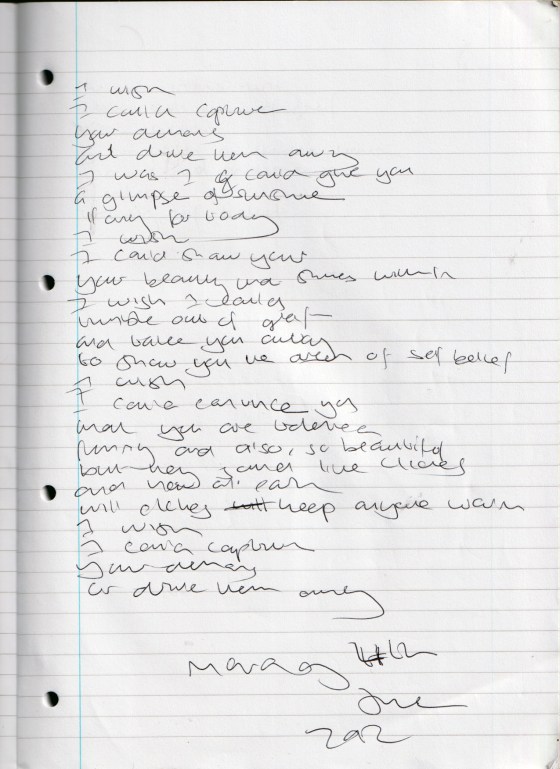 I wish
I could capture
your demons
and drive them away
I wish I could give you
a glimpse of sunshine
if only for today
I wish
I could show you
your beauty that shines within
I wish I could
out of
and take you away
to show you the of self belief
I wish
I could convince you
that you are talented
funny and also, so beautiful
but they sound like cliches
and how on earth
will cliches keep anyone warm
I wish
I could capture
your demons
or drive them away
Monday
June
2012